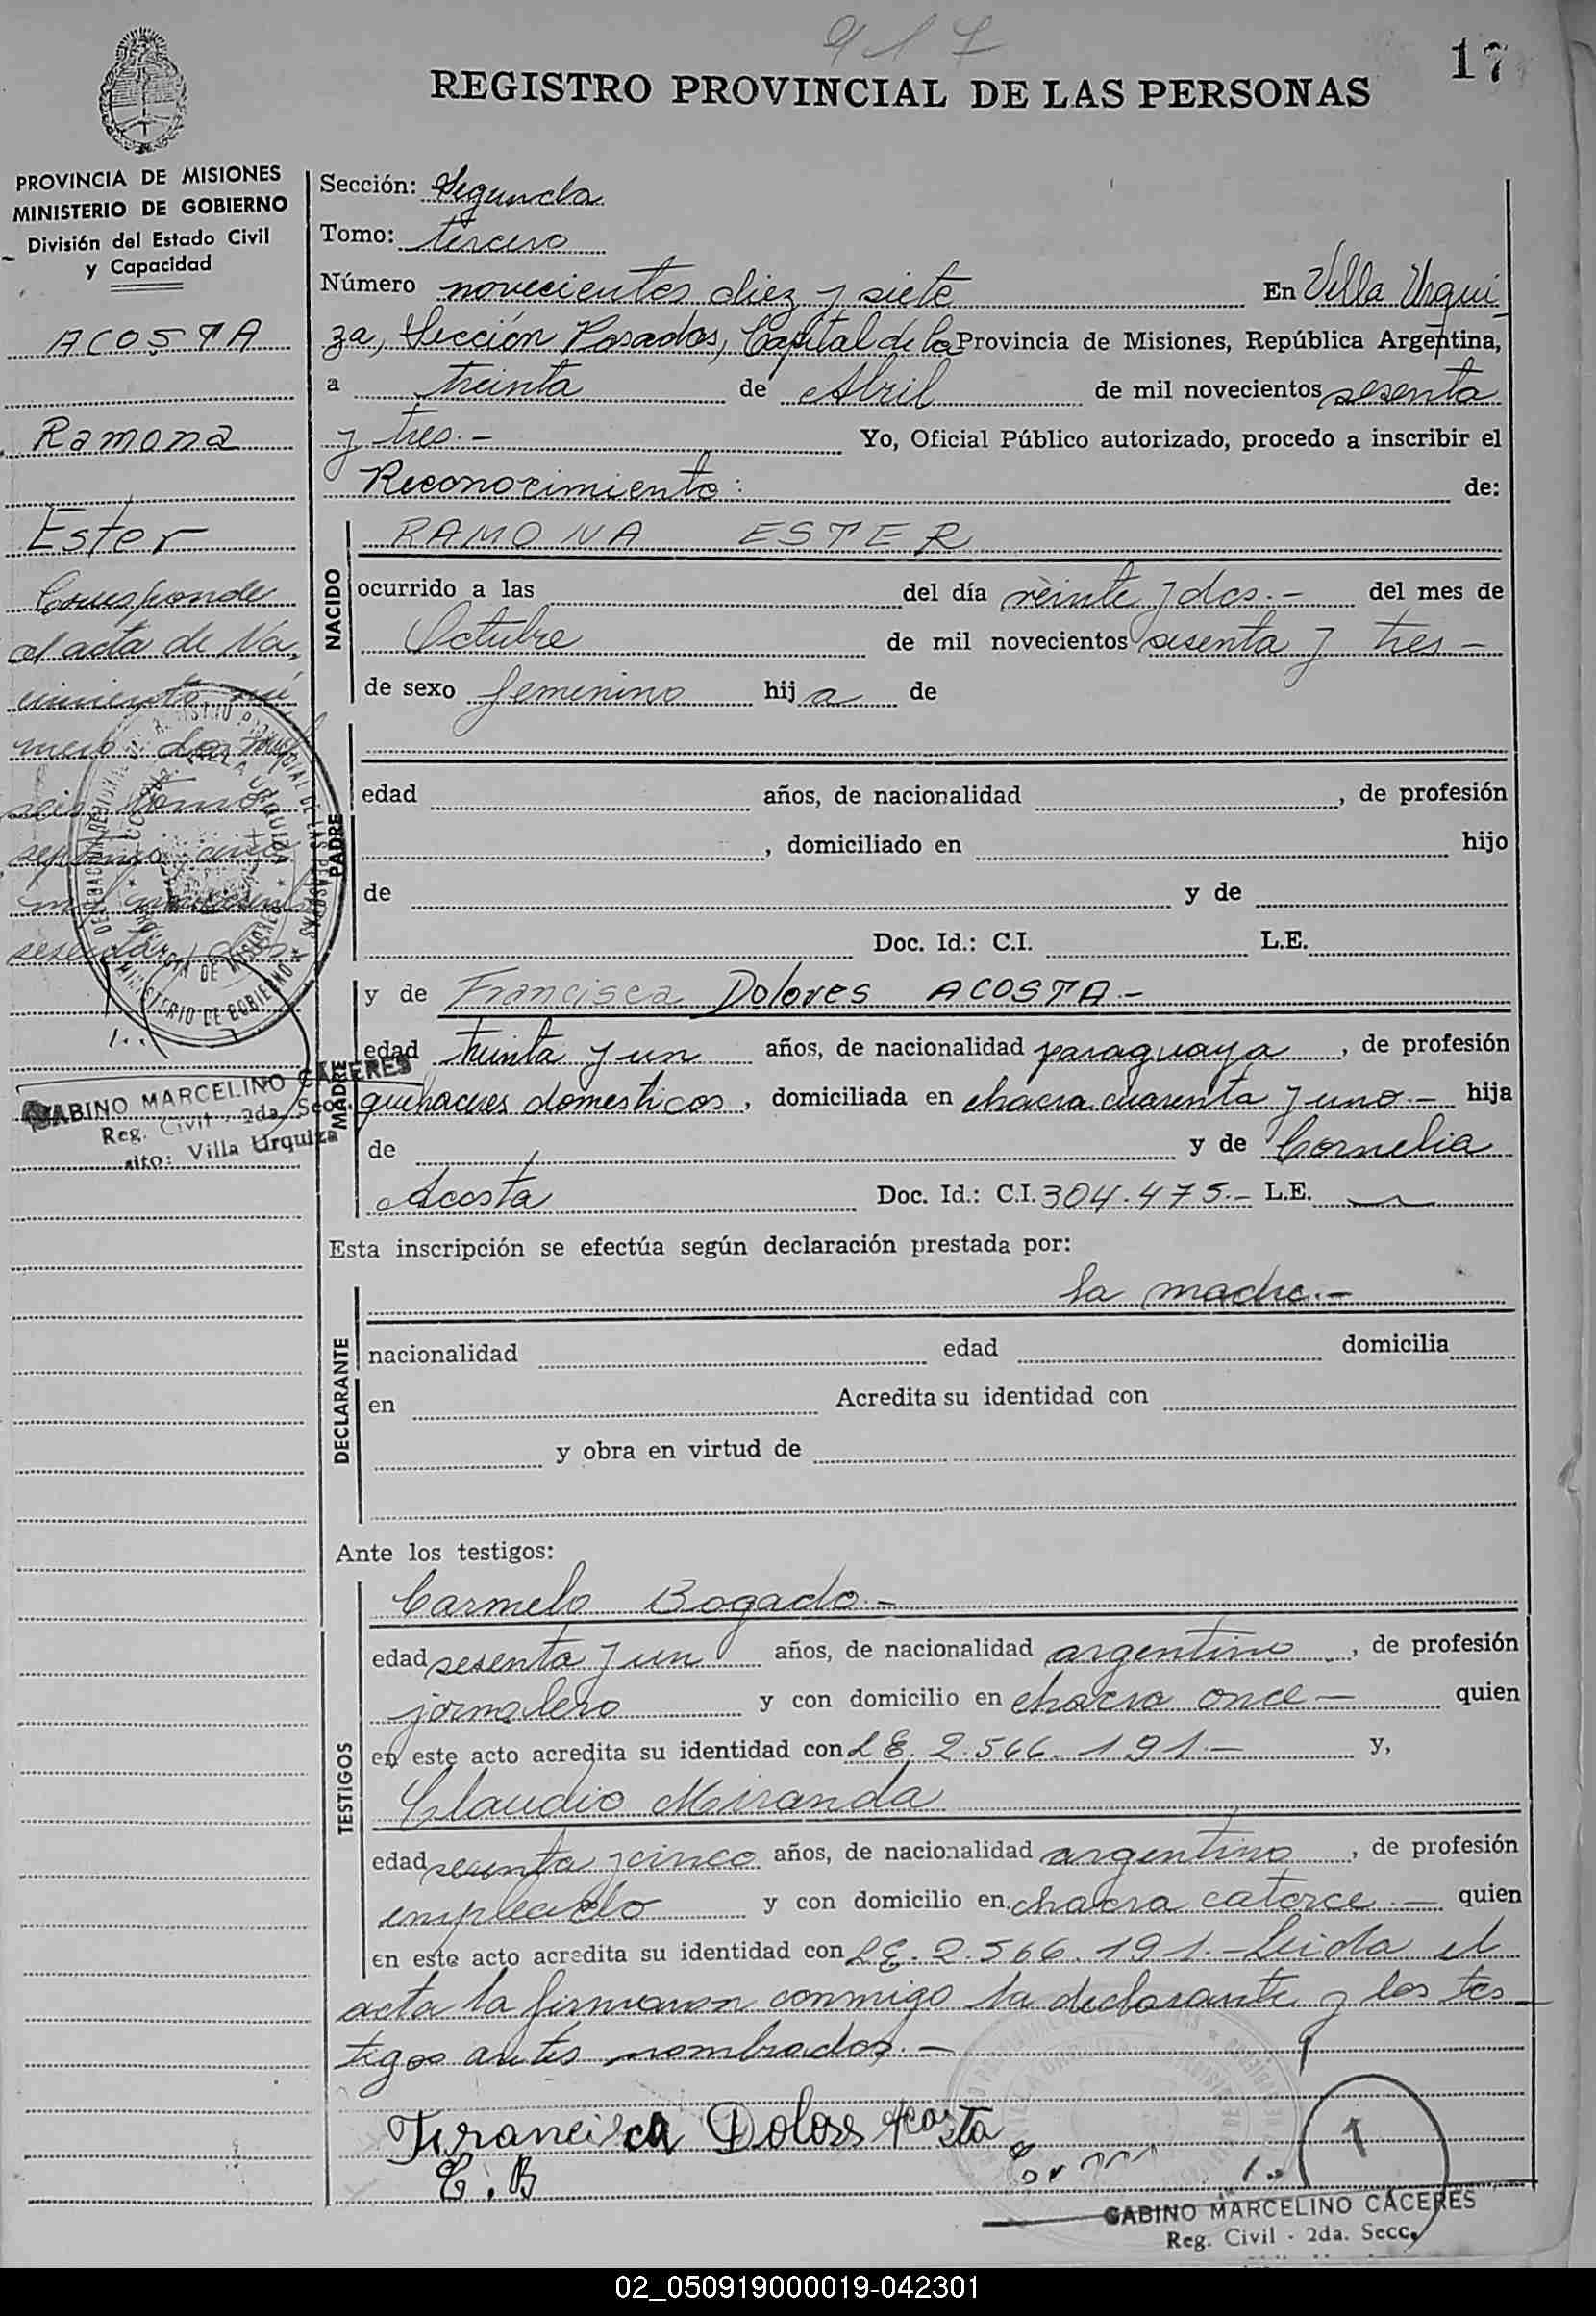 917
17
REGISTRO PROVINCIAL DE LAS PERSONAS
PROVINCIA DE MISIONES
MINISTERIO DE GOBIERNO
División del Estado Civil
y Capacidad
ACOSTA
Ramona
Ester
Corresponde
al acta de Na
cimiento nú
mero
seis tomo
septimo
mil novecientos
sesenta y
GABINO MARCELINO CACERES
Reg. Civil - 2da. Secc.
sito: Villa Urquiza
Sección: Segunda
Tomo: tercero
Número novecientos diez y siete En Villa Urqui
za, Sección Posadas, Capital de la Provincia de Misiones, República Argentina,
a treinta de Abril de mil novecientos sesenta
y tres.- Yo, Oficial Público autorizado, procedo a inscribir el
Reconocimiento: de:
NACIDO
RAMONA ESTER
ocurrido a las del día veinte y dos.- del mes de
Octubre de mil novecientos sesenta y tres -
de sexo femenino hija de
PADRE
edad años, de nacionalidad , de profesión
, domiciliado en hijo
de y de
Doc. Id.: C.I. L.E.
MADRE
y de Francisca Dolores ACOSTA.-
edad treinta y un años, de nacionalidad paraguaya , de profesión
quehaceres domesticos , domiciliada en chacra cuarenta y uno.- hija
de y de Cornelia
Acosta Doc. Id.: C.I. 304.475.- L.E.
Esta inscripción se efectúa según declaración prestada por:
DECLARANTE
la madre.-
nacionalidad edad domicilia
en Acredita su identidad con
y obra en virtud de
Ante los testigos:
TESTIGOS
Carmelo Bogado.-
edad sesenta y un años, de nacionalidad argentino , de profesión
jornalero y con domicilio en chacra once - quien
en este acto acredita su identidad con L E. 2.566.191.- y,
Claudio Miranda
edad y cinco años, de nacionalidad argentino , de profesión
empleado y con domicilio en chacra catorce.- quien
en este acto acredita su identidad con L E. 2.566.191.- Leida el
acta la firmaron conmigo la declarante y los tes
tigos antes nombrados.-
Francisca Dolores Acosta
C. B
GABINO MARCELINO CÁCERES
Reg. Civil - 2da. Secc.
02_050919000019-042301